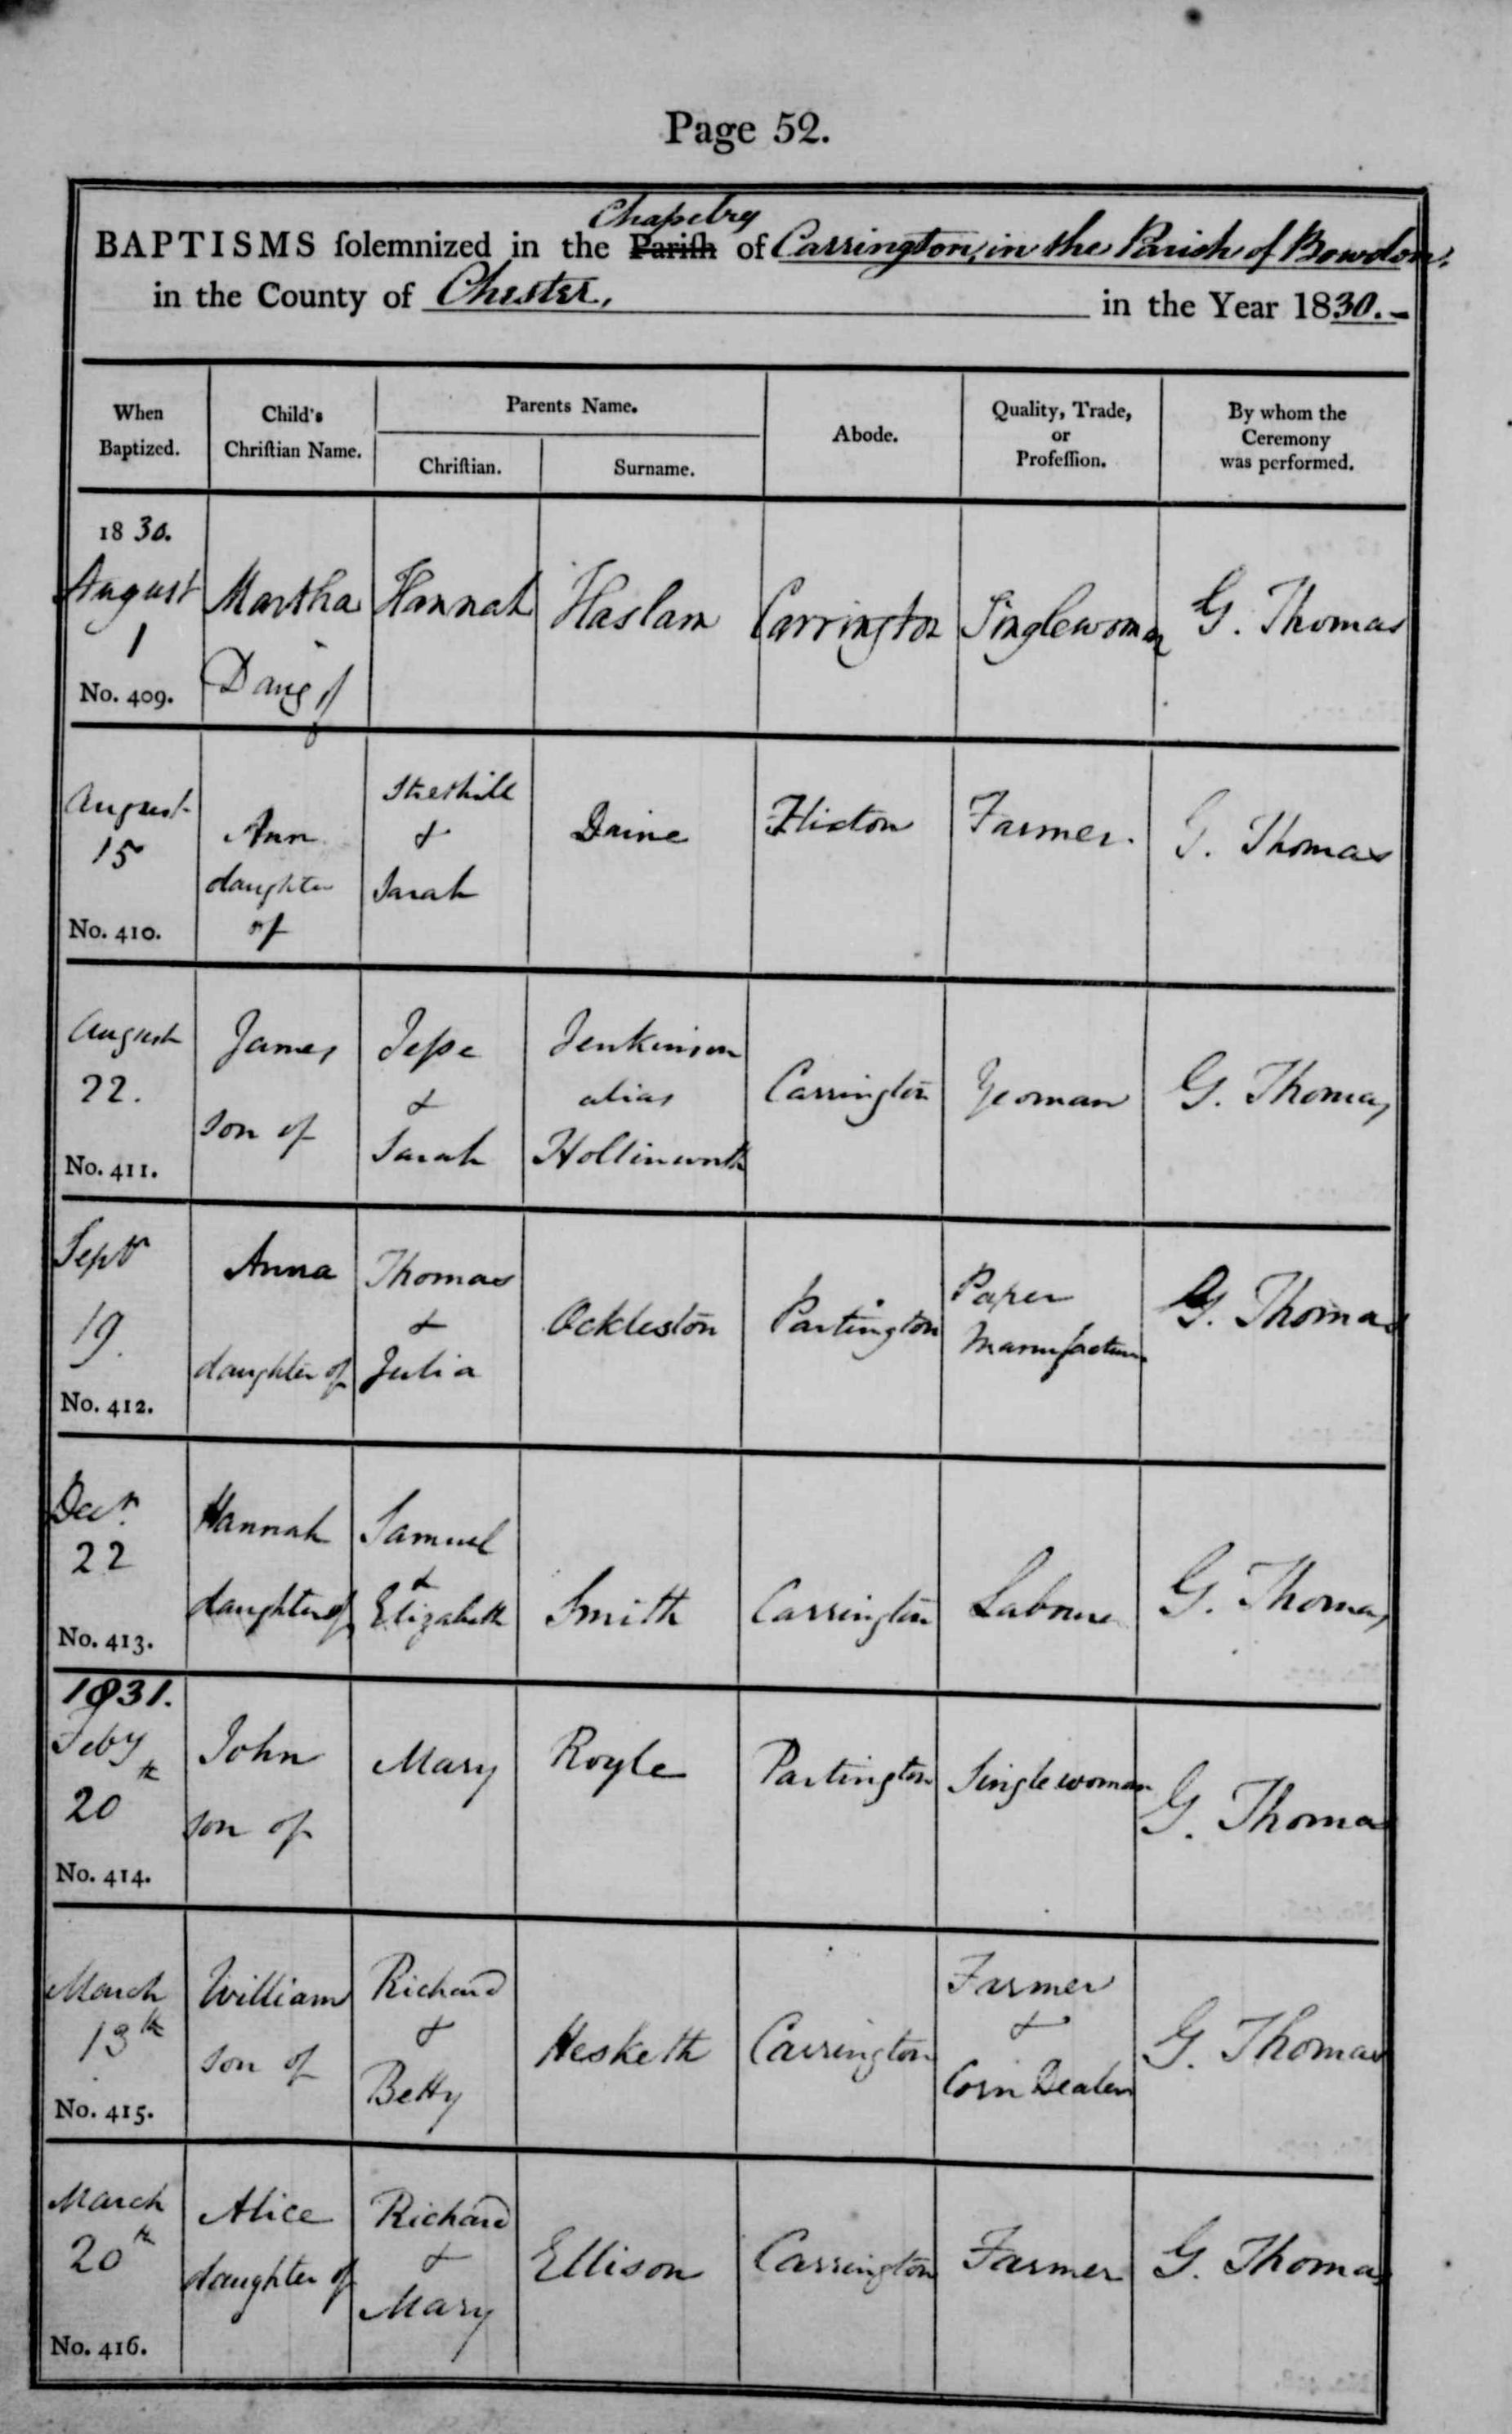 Page 52.
Chapelry
BAPTISMS ſolemnized in the Pariſh of Carrington, in the Parish of Bowdon.
in the County of Chester, in the Year 1830.-
When Baptized.
Child's Chriſtian Name.
Parents Name.
Chriſtian.
Surname.
Abode.
Quality, Trade, or Profeſſion.
By whom the Ceremony was performed.
1830.
August
1
No. 409.
Martha
Daug of
Hannah
Haslam
Carrington
Singlewoman
G. Thomas
August
15
No. 410.
Ann
daughter
of
Strethill
&
Sarah
Daine
Flixton
Farmer.
G. Thomas
August
22.
No. 411.
James
son of
Jesse
&
Sarah
Jenkinson
alias
Hollinworth
Carrington
Yeoman
G. Thomas
Septr
19.
No. 412.
Anna
daughter of
Thomas
&
Julia
Ockleston
Partington
Paper
Manufacturer
G. Thomas
Decr.
22
No. 413.
Hannah
daughter of
Samuel
&
Elizabeth
Smith
Carrington
Labourer
G. Thomas
1831.
Feby
20th
No. 414.
John
son of
Mary
Royle
Partington
Single woman
G. Thomas
March
13th
No. 415.
William
son of
Richard
&
Betty
Hesketh
Carrington
Farmer
&
Corn Dealer
G. Thomas
March
20th
No. 416.
Alice
daughter of
Richard
&
Mary
Ellison
Carrington
Farmer
G. Thomas